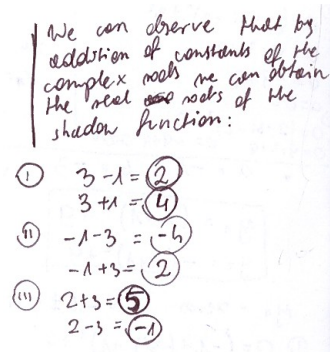 We can observe that by
addition of constants of the
complex roots we can obtain
the real roots of the
shadow function:
(i) 3 - 1 = 2
3 + 1 = 4
(ii) -1 - 3 = -4
-1 + 3 = 2
(iii) 2 + 3 = 5
2 - 3 = -1